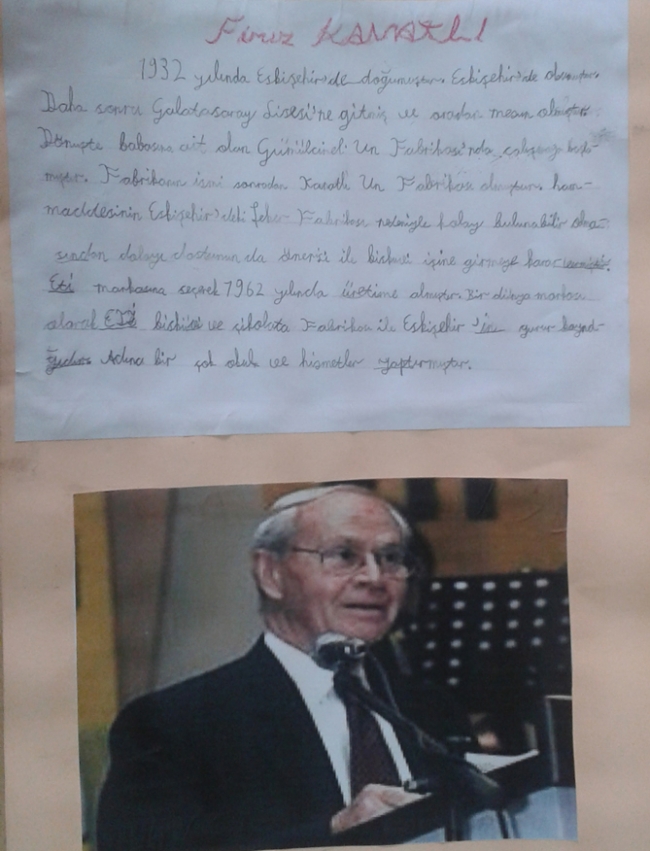 Firuz KANATLI
1932 yılında Eskişehir'de doğumuştur. Eskişehir'de
Daha sonra Galadasaray Lisesi'ne gitmiş ve oradan mezun olmuştur.
Dönüşte babasına ait olan Un Fabrikası'nda çalışmaya başla-
mıştır. Fabrikanın ismi sonradan Kanatlı Un Fabrikası olmuştur. ham-
maddesinin Eskişehir'deki Şeker Fabrikası nedeniyle kolay bulunabilir olma-
sından dolayı da ile bisküvi işine girmeye karar
Eti markasını seçerek 1962 yılında üretime almıştır. Bir dünya markası
olarak ETİ bisküvi ve çikolata Fabrikası ile Eskişehir 'in gurur kaynağı-
Adına bir çok okul ve hizmetler yaptırmıştır.